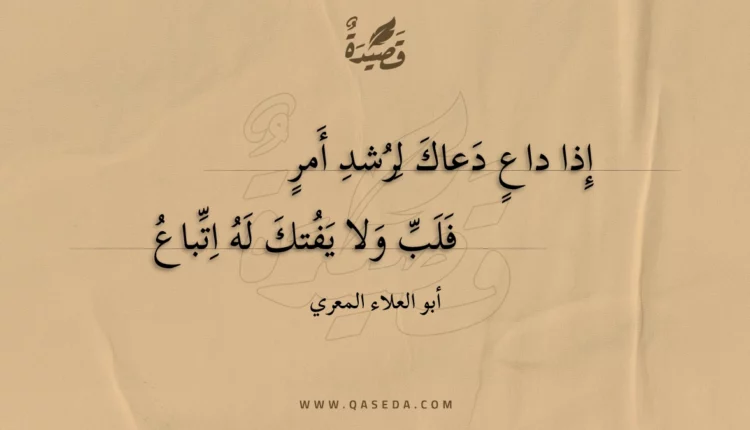 قَصِيدَةٌ
إِذا داعٍ دَعاكَ لِرُشدِ أَمرٍ
فَلَبِّ وَلا يَفُتكَ لَهُ اِتِّباعُ
أبو العلاء المعري
WWW.QASEDA.COM